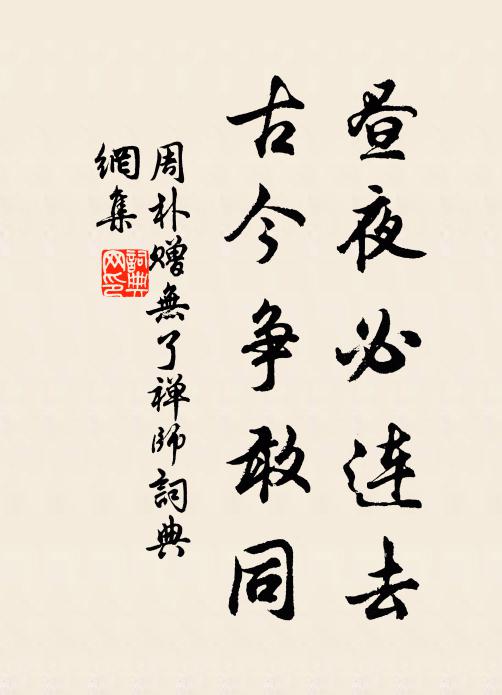 昼夜必连去
古今争敢同
周朴赠無了禅師詞典
網集
詞典
网印